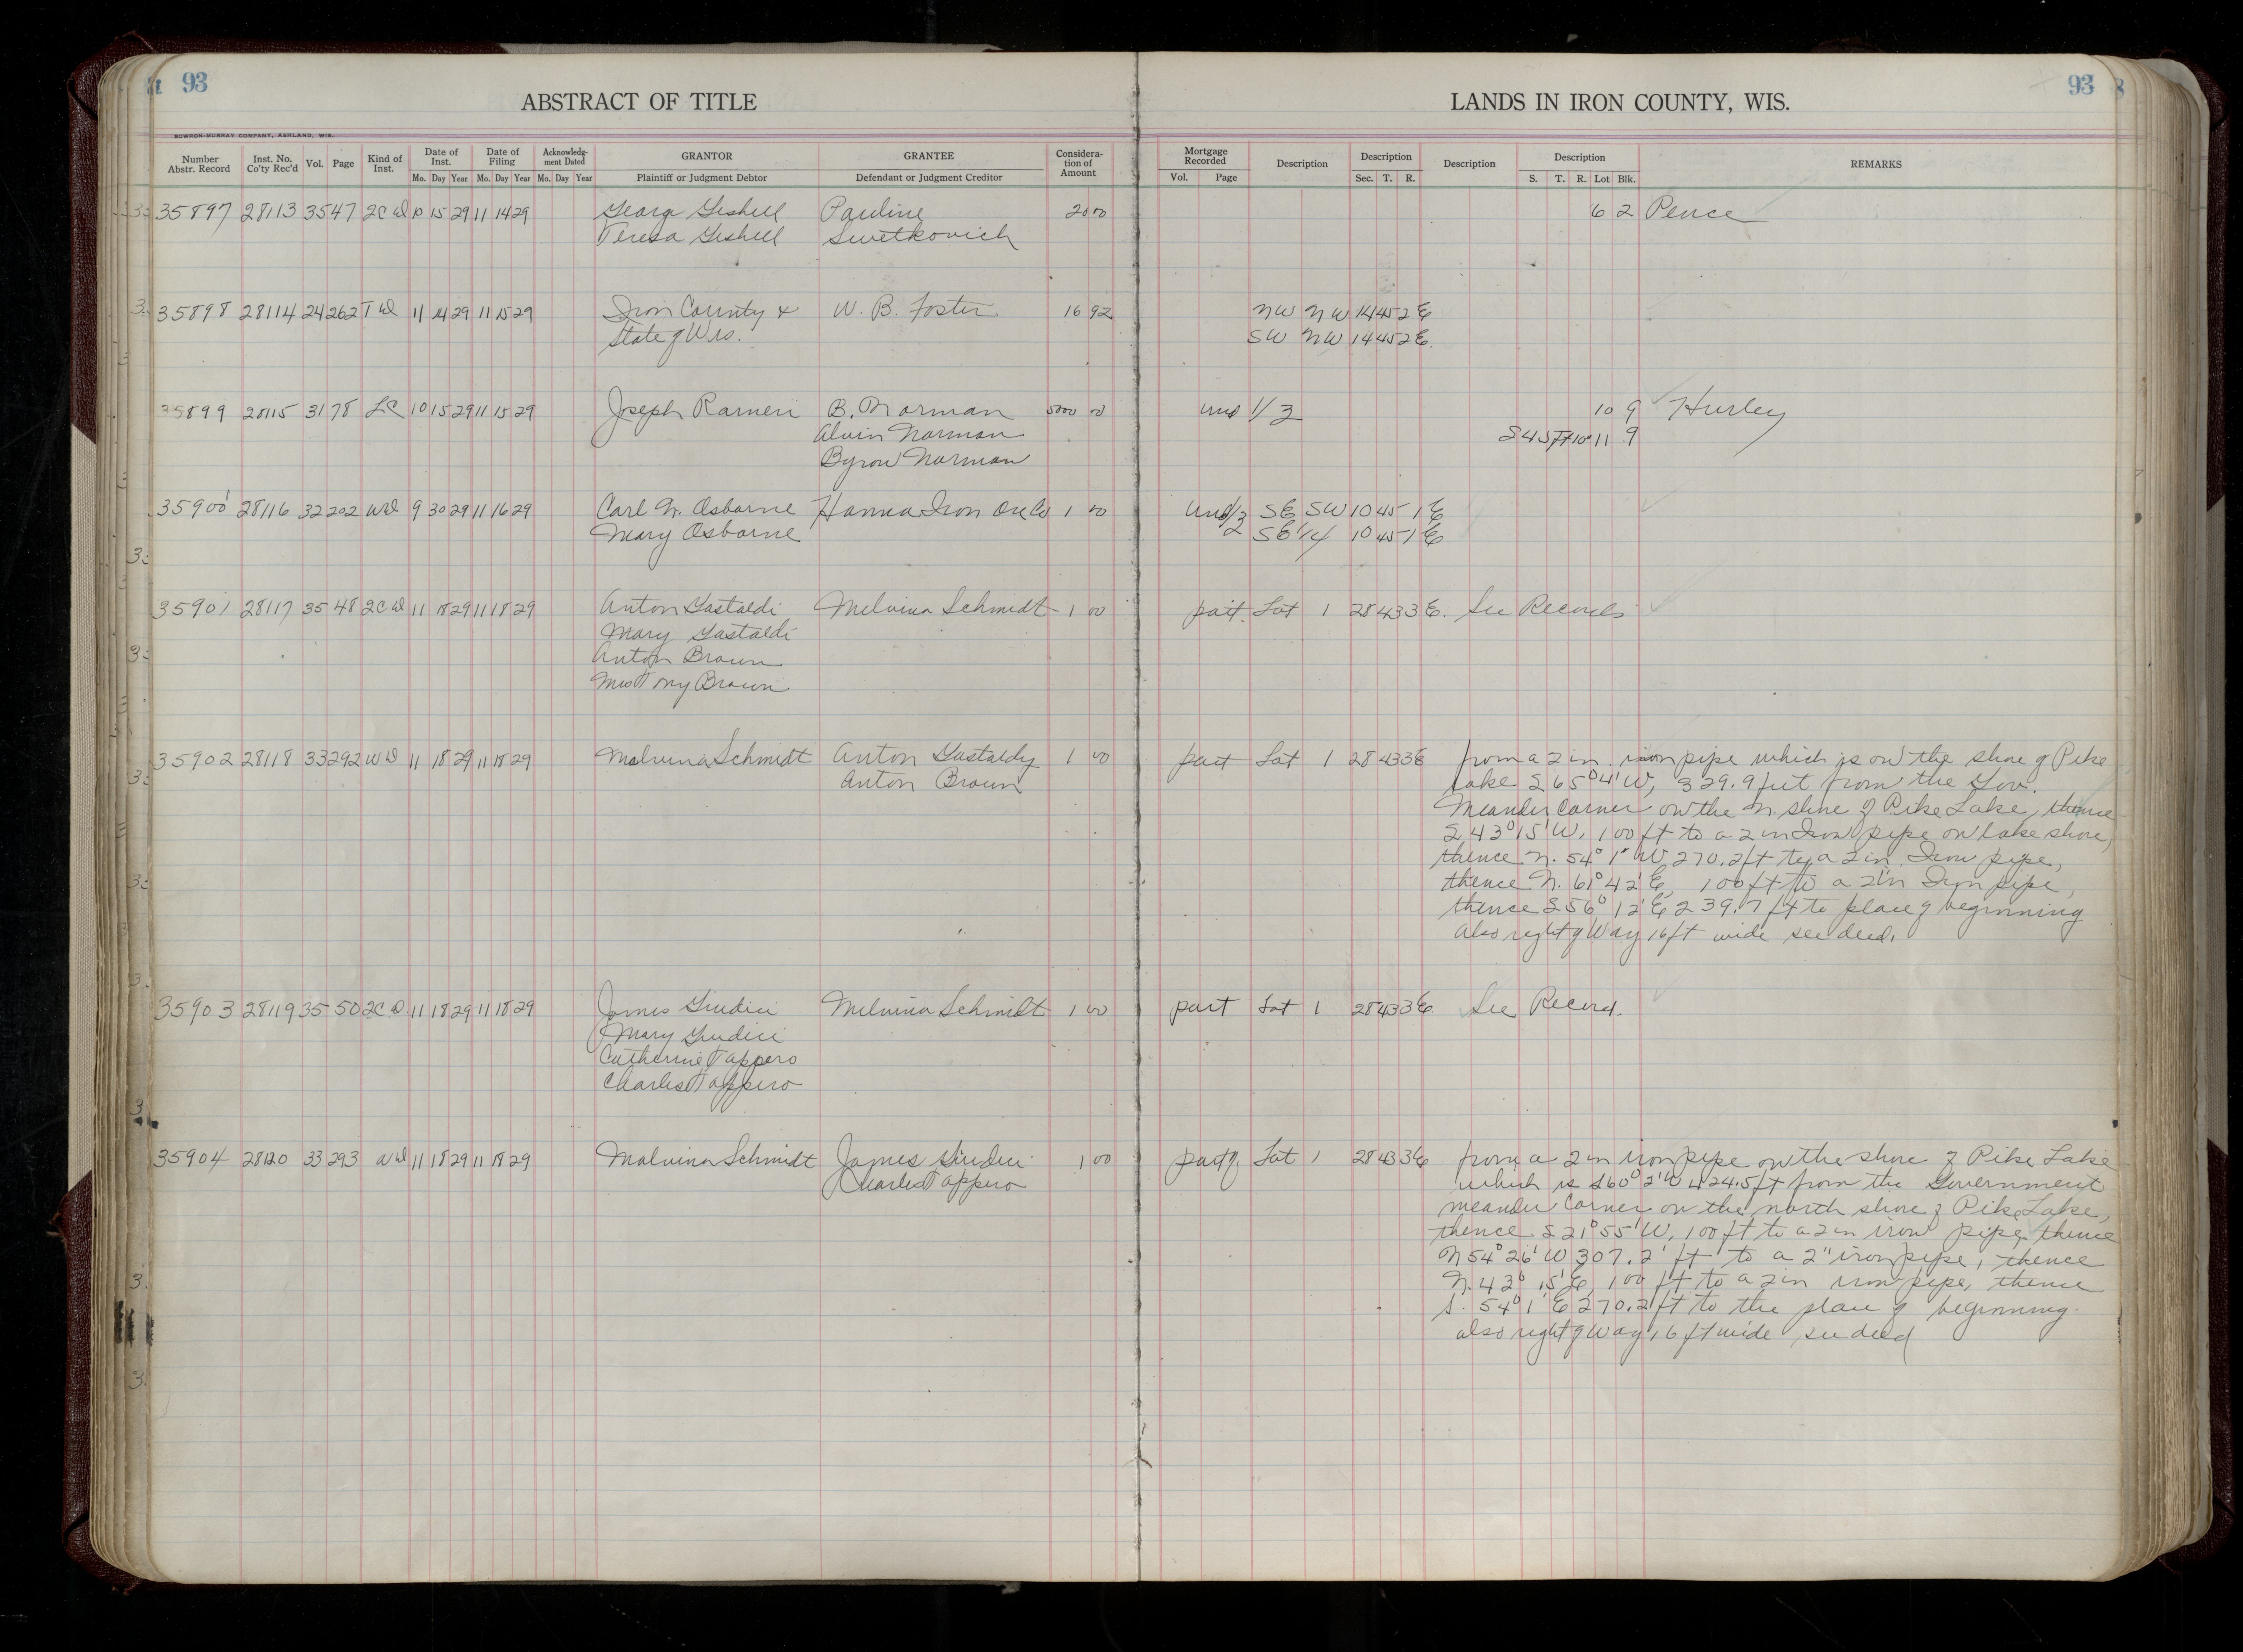 93
ABSTRACT OF TITLE
LANDS IN IRON COUNTY, WIS.
93
BOWRON-MURRAY COMPANY, ASHLAND, WIS.
Number Abstr. Record Inst. No. Co'ty Rec'd Vol. Page Kind of Inst. Date of Inst. Mo. Day Year Date of Filing Mo. Day Year Acknowledgment Dated Mo. Day Year GRANTOR Plaintiff or Judgment Debtor GRANTEE Defendant or Judgment Creditor Consideration of Amount Mortgage Recorded Vol. Page Description Description Sec. T. R. Description Description S. T. R. Lot Blk. REMARKS
35897 28113 35 47 2C WD 10 15 29 11 14 29 Pauline 20 00 6 2 Pence
Swetkovich
35898 28114 24 262 T WD 11 14 29 11 15 29 Iron County & W. B. Foster 16 92 NW NW 14 45 2 E
State of Wis. SW NW 14 45 2 E.
35899 28115 31 78 LC 10 15 29 11 15 29 Joseph Raineri B. Norman 5000 00 und 1/3 10 9 Hurley
Alvin Norman 11 9
Byron Norman
35900 28116 32 202 WD 9 30 29 11 16 29 Carl N. Osborne Hanna Iron Ore Co 1 00 SE SW 10 45 1 E
Mary Osborne SE 1/4 10 45 1 E
35901 28117 35 48 2C WD 11 18 29 11 18 29 Anton Gastaldi Melvina Schmidt 1 00 part. Lot 1 28 43 3 E. See Records
Mary Gastaldi
Anton Brown
Mrs Tony Brown
35902 28118 33 292 WD 11 18 29 11 18 29 Malvina Schmidt Anton Gastaldy 1 00 part Lot 1 28 43 3E from a 2 in iron pipe which is on the shore of Pike
Anton Brown Lake S 65° 4' W, 329.9 feet from the Gov.
Meander corner on the N. shore of Pike Lake, thence
S 43° 15' W, 100 ft to a 2 in Iron pipe on lake shore,
thence N. 54° 1' W 270.2 ft to a 2 in Iron pipe,
thence N. 61° 42' E, 100 ft to a 2 in Iron pipe,
thence S 56° 12' E 239.7 ft to place of beginning
Also right of Way 16 ft wide see deed.
35903 28119 35 50 2C D 11 18 29 11 18 29 James Giudici Melvina Schmidt 1 00 part Lot 1 28 43 3 E See Record.
Mary Giudici
Catherine Tappero
Charles Tappero
35904 28120 33 293 WD 11 18 29 11 18 29 Malvina Schmidt James Giudici 1 00 part of. Lot 1 28 43 3E from a 2 in iron pipe on the shore of Pike Lake
Charles Tappero which is S60° 2' W 424.5 ft from the Government
meander corner on the north shore of Pike Lake,
thence S 21° 55' W, 100 ft to a 2 in iron pipe thence
N 54° 26' W 307.2' ft to a 2" iron pipe, thence
N. 43° 15' E, 100 ft to a 2 in iron pipe, thence
S. 54° 1' E 270.2 ft to the place of beginning.
also right of Way 16 ft wide see deed